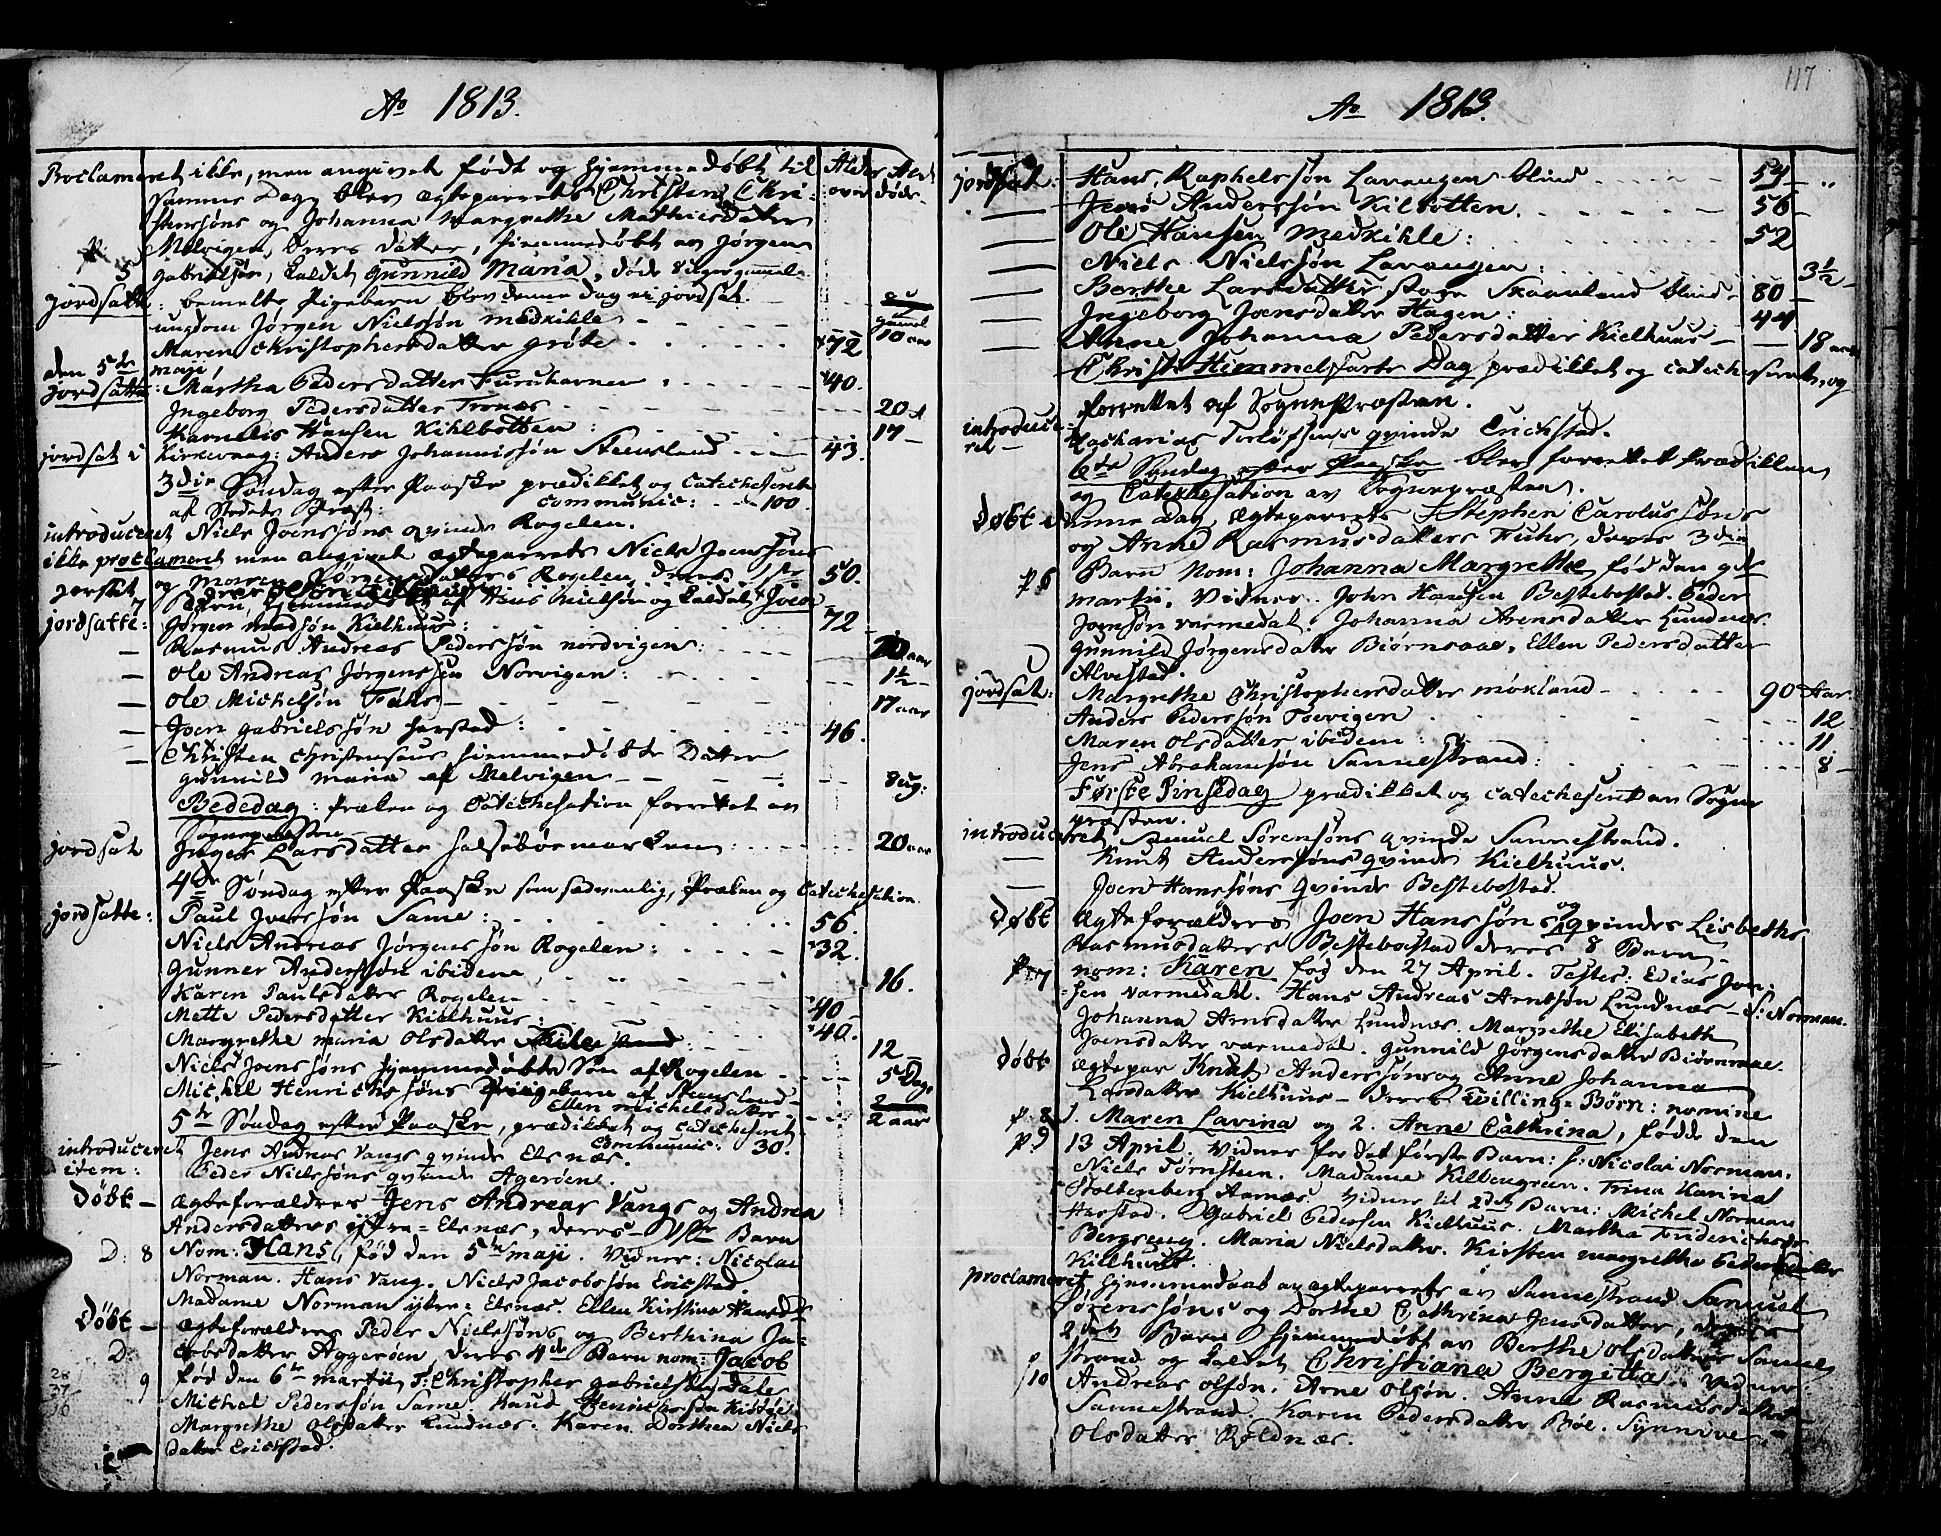 Ao 1813.
Proclameret ikke, men angivet født og hjemmedøbt til
samme Dag blev ægteparrets Christen Chri-
stensøns og Johanna Margrethe Mathiisdatter
Melvigen, deres Datter, hjemmedøbt av Jørgen
5 Gabrielsøn, kaldet Gunnild Maria, døde 8 uger gammel
Alder over
døde
jordsatt: bemelte Pigebarn blev denne dag jordsat.
ungdom Jørgen Nielssøn Medkihle 10 aar
Maren Christophersdatter Grøte 72
den 5te maji
jordsatte: Martha Pedersdatter Furuhavner 40.
Ingeborg Pedersdatter Tronæs 20
Karnelis Hansen Kihlbotten: 17
jordsat i Kirkevaag: Anders Johannissøn Steensland 43.
3die Søndag efter Paaske prædikket og Catecheseret
af Stedets Præst: communic: 100.
introduceret Niels Joenssøns qvinde Rogelen.
ikke proclameret men angivet ægteparrets Niels Joenssøns
og Maren Sørensdatters Rogelen, deres 1ste 50.
7 Børn, hjemmedøbt af Hans Nielsøn og kaldet Joen
jordsatte: Jørgen Madsøn Kielhuus: 72
— Rasmus Andreas Pederssøn Nordvigen: aar
— Ole Andreas Jørgenssen Norvigen: 1½
— Ole Michelsøn Fuhs 17 aar
— Joen Gabrielssøn Harstad: 46.
— Christen Christensens hjemmedøbte Datter
Gunnild Maria af Melvigen 8 ug:
Bededag: Præken og Catechesation forrettet av
Sognepresten
jordsat Inger Larsdatter Halsebøemarken: 20 aar
4de Søndag efter Paaske som sædvanlig, Præken og Catechesation.
jordsatte: Paul Iverssøn Same: 56.
Niels Andreas Jørgenssøn Rogelen: 32.
Gunner Anderssøn ibidem 16.
Karen Paulsdatter Rogelen
Mette Pedersdatter Kielhuus: 40
Margrethe Maria Olsdatter 40.
12
Niels Joenssøns hjemmedøbte Søn af Rogelen 5 Dage
Michel Henrichssøns Pigebarn af Steensland
Ellen Michelsdatter 2 aar
5te Søndag efter Paaske, prædikket og catecheseret
communic: 30.
introduceret Jens Andreas Vangs qvinde Elsnæs.
idem: Peder Nielssøns qvinde Agerøen.
Døbt — Ægteforældrer Jens Andreas Vangs og Andrea
Andersdatters ijttre-Elsnæs, deres 1ste Barn
D: 8 Nom: Hans, fød den 5te maji. Vidner: Nicolai
Norman. Hans Vang. Niels Jacobssøn Ericstad.
Madame Norman ijtre-Elsnæs. Ellen Kirstina
Døbt — Ægteforældrer Peder Nielssøns og Berthina Ja-
D: cobsdatter Aggerøen deres 4de Barn nom: Jacob
9 fød den 6te martii, T: Christopher Gabrielsen Dale
Michel Pederssøn Same. Knud
Margrethe Olsdatter Lundnæs. Karen Dorthea Niels-
datter Erickstad.
117
Ao 1813.
jordsat: Hans Raphelssøn Lavangen blind 54
— Jens Anderssøn Kilbotten. 56
— Ole Hansen Medkihle: 52
— Niels Nielssøn Lavangen: 3½
— Berthe Larsdatter store Skaanland blind 80
— Ingeborg Joensdatter Hagen: 44
— Anne Johanna Pedersdatter Kielhuus 18 aar
Christi Himmelfarts Dag prædikket og catecheseret, og
forrettet af SognePræsten.
introduceret — Zacharias Torlofsens qvinde Erichstad.
6te Søndag efter Paaske blev forrettet Prædikken
og Catechesation av Sognepræsten.
Døbt denne Dag Ægteparrets Stephen Carolussøns
og Anne Rasmusdatters Fuhs, deres 3die
P 6 Barn Nom: Johanna Margrethe fød den 9de
martii. Vidner. John Hansen Bestebostad. Peder
Joensøn Varmedal. Johanna Arensdatter Lundnæs.
Gunnild Jørgensdatter Biørnsaae, Ellen Pedersdatter
Alvestad.
jordsat: Margrethe Christophersdatter Mokland 90
Anders Pederssøn Toevigen 12
Maren Olsdatter ibidem: 11.
Jens Abrahamsøn Sannestrand: 8
Første Pinsedag prædikket og catecheseret av Sogne-
præsten.
introduceret Samuel Sørensøns qvinde Sannestrand.
— Knut Anderssøns qvinde Kielhuus.
— Joen Hanssøns qvinde Bestebostad.
Døbt Ægteforældrer Joen Hanssøns og qvindes Lisbeths
Rasmusdatters Bestebostad deres 8 Barn
P. 7 nom: Karen fød den 27 April. Testes: Edias Jon-
sen Varmedahl. Hans Andreas Arntsøn Lundnæs S: Norman.
Johanna Arnsdatter Lundnæs. Margrethe Elisabeth
Joensdatter Varmedal. Gunnild Jørgensdatter Biørnsaae.
Døbt Ægtepar Knut Anderssøns og Anne Johanna
Larsdatter Kielhuus deres Tvilling-Børn: nomine
P. 8 1. Maren Lavina og 2. Anne Cathrina, fødde den
P. 9 13 April. Vidner for det første Barn: S: Nicolai Norman.
Niels Tørnsteen. Madame Killengreen. Trina Karina
Stoltenberg Aarnæs. Vidner til 2det Barn: Michel Norman
Harstad. Gabriel Pedersen Kielhuus. Martha Friderichsdr
Bergseng. Maria Nielsdatter. Kirsten Margretha Pedersdatter
Kielhuus.
proclameret, hjemmedaab av ægteparrets av Sannestrand Samuel
Sørenssøns og Dorthe Cathrina Jensdatter, deres
2det Barn hjemmedøbt av Berthe Olsdatter Sanne-
strand og kaldet Christiana Bergitta. Vidner:
P 10 Andreas Olsøn. Arne Olsøn. Anna Rasmusdatter
Sannestrand. Karen Pedersdatter Bøe. Synnive
Olsdatter Roldnæs.